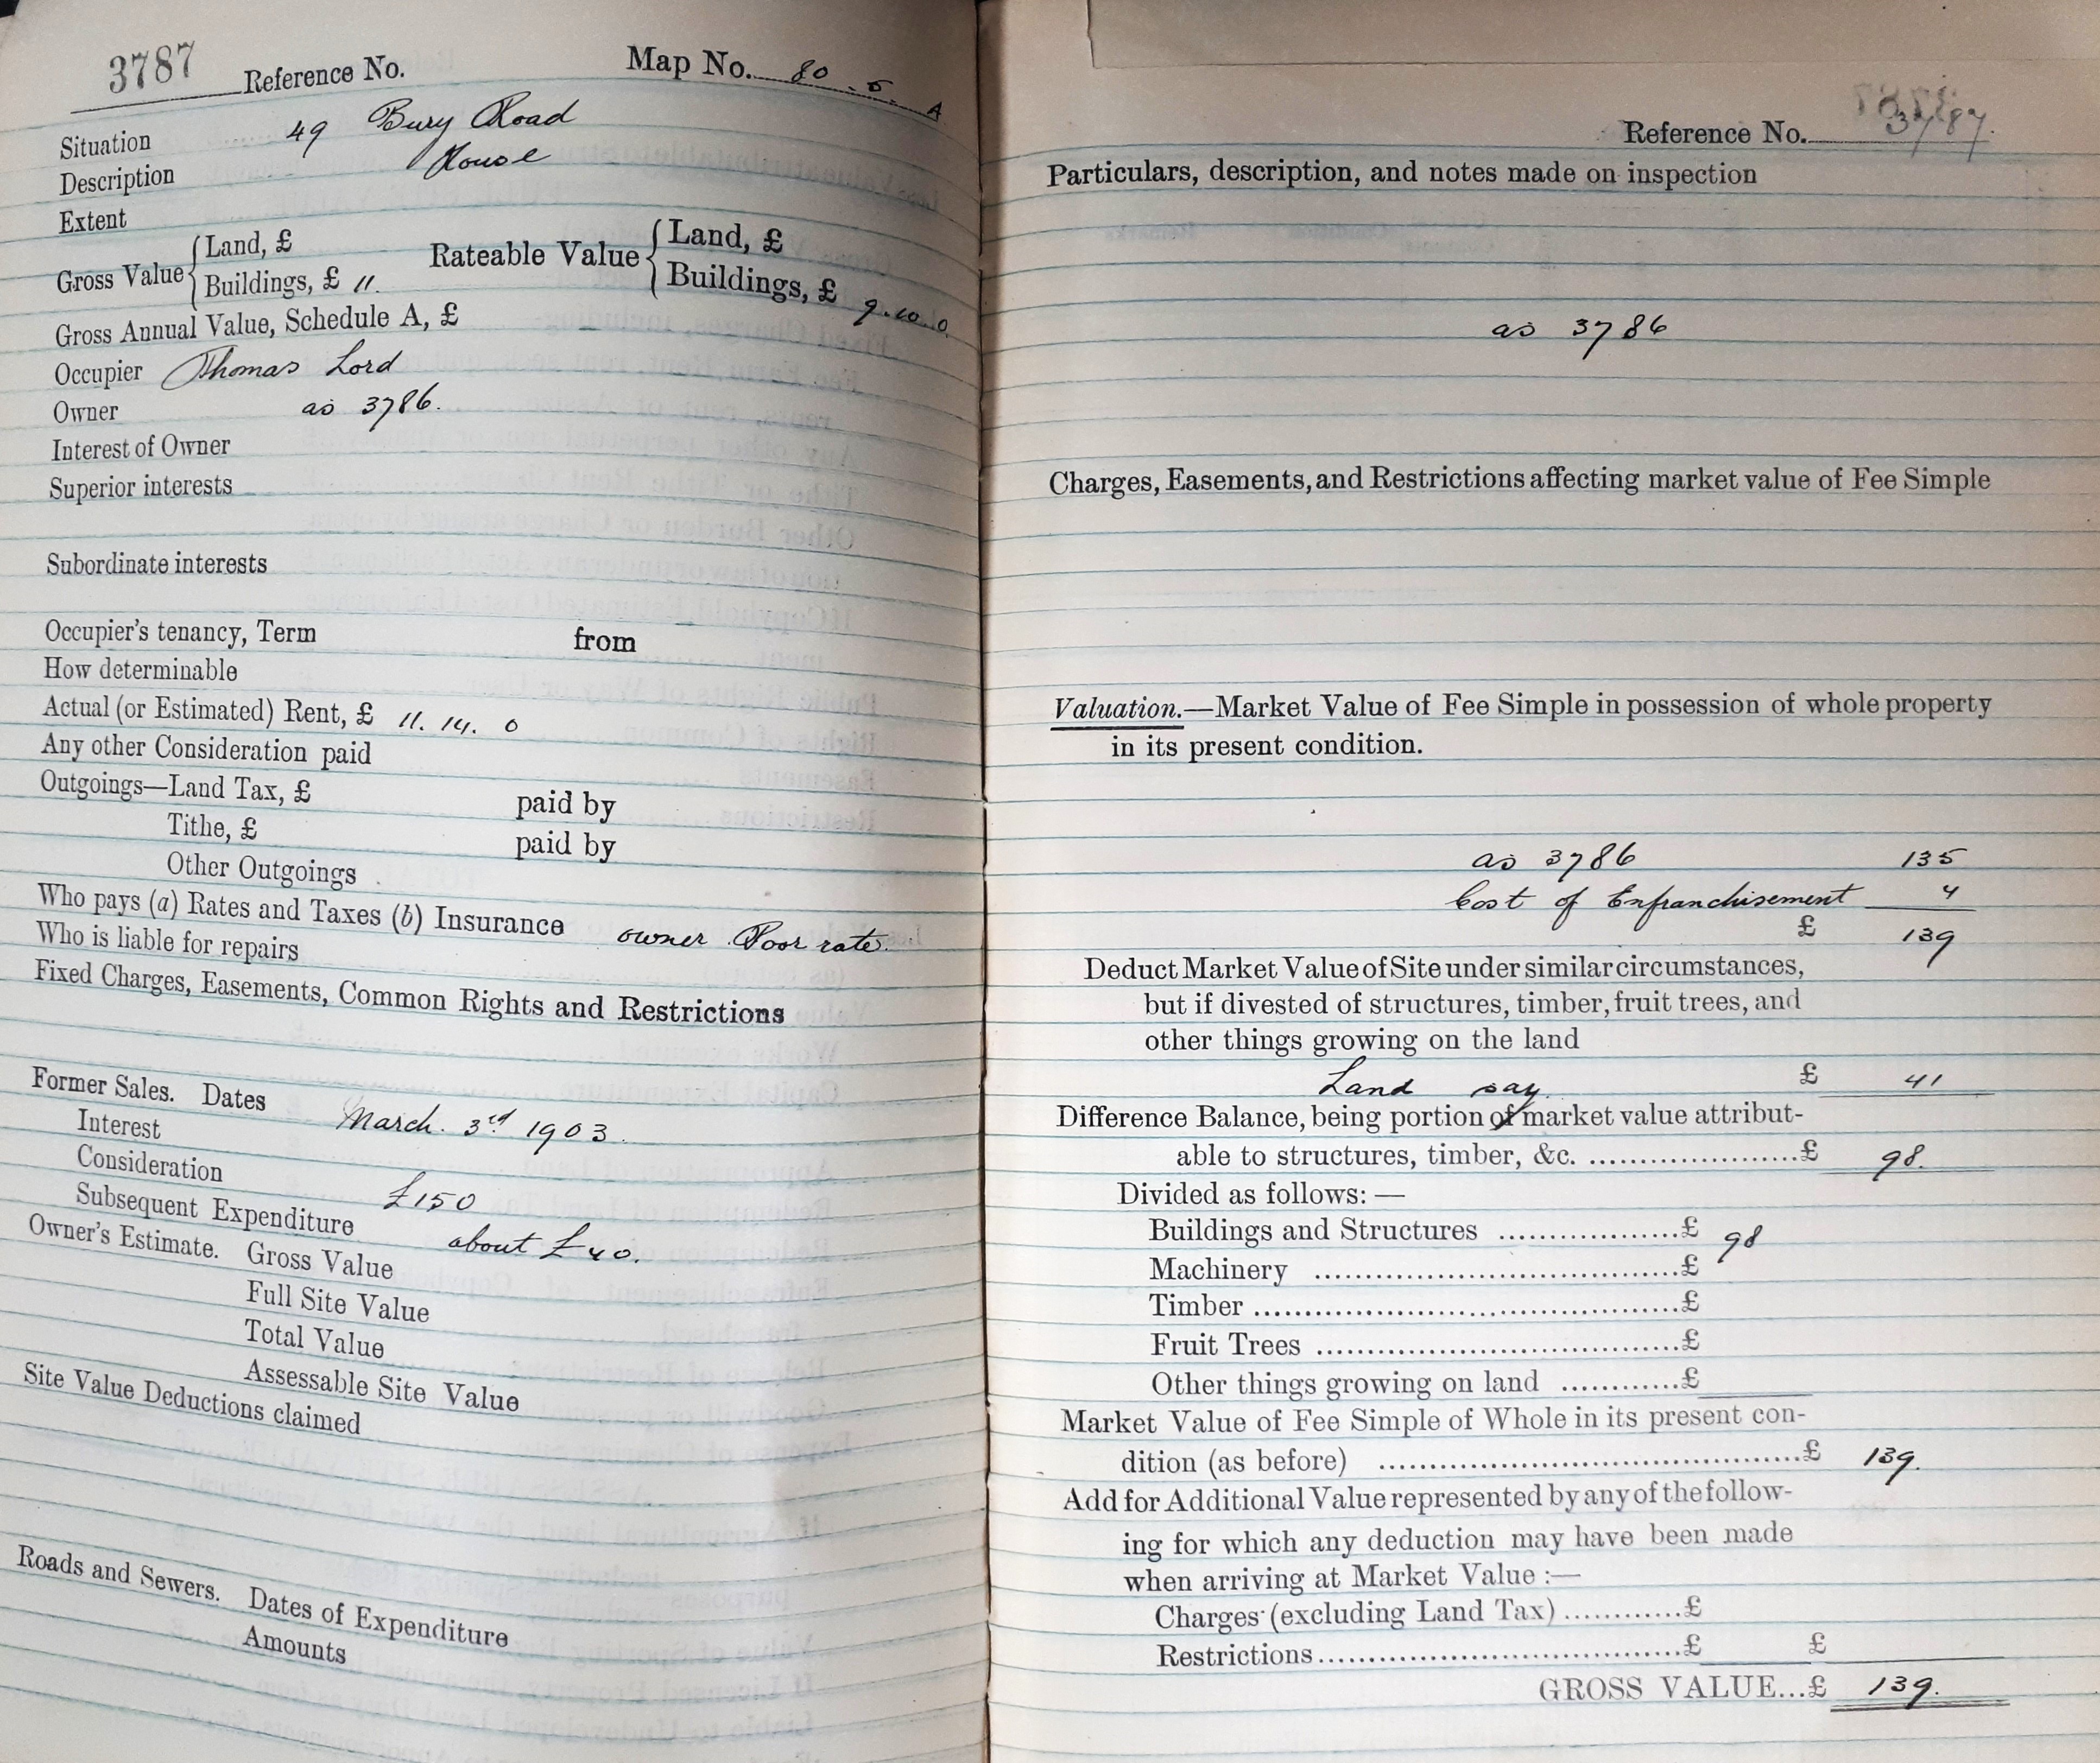 3787 Reference No. Map No. 80. 5. A
Situation 49 Bury Road
Description House
Extent
Gross Value { Land, £ Rateable Value { Land, £
Buildings, £ 11. Buildings, £ 9.10.0.
Gross Annual Value, Schedule A, £
Occupier Thomas Lord
Owner as 3786.
Interest of Owner
Superior interests
Subordinate interests
Occupier's tenancy, Term from
How determinable
Actual (or Estimated) Rent, £ 11. 14. 0
Any other Consideration paid
Outgoings—Land Tax, £ paid by
Tithe, £ paid by
Other Outgoings
Who pays (a) Rates and Taxes (b) Insurance owner Poor rate.
Who is liable for repairs
Fixed Charges, Easements, Common Rights and Restrictions
Former Sales. Dates March. 3rd 1903.
Interest
Consideration £150
Subsequent Expenditure about £40.
Owner's Estimate. Gross Value
Full Site Value
Total Value
Assessable Site Value
Site Value Deductions claimed
Roads and Sewers. Dates of Expenditure
Amounts
Reference No. 3787.
Particulars, description, and notes made on inspection
as 3786
Charges, Easements, and Restrictions affecting market value of Fee Simple
Valuation.—Market Value of Fee Simple in possession of whole property
in its present condition.
as 3786 135
Cost of Enfranchisement 4
£ 139
Deduct Market Value of Site under similar circumstances,
but if divested of structures, timber, fruit trees, and
other things growing on the land
Land say. £ 41
Difference Balance, being portion of market value attribut-
able to structures, timber, &c. £ 98.
Divided as follows:—
Buildings and Structures £ 98
Machinery £
Timber £
Fruit Trees £
Other things growing on land £
Market Value of Fee Simple of Whole in its present con-
dition (as before) £ 139.
Add for Additional Value represented by any of the follow-
ing for which any deduction may have been made
when arriving at Market Value:—
Charges (excluding Land Tax) £
Restrictions £ £
GROSS VALUE...£ 139.